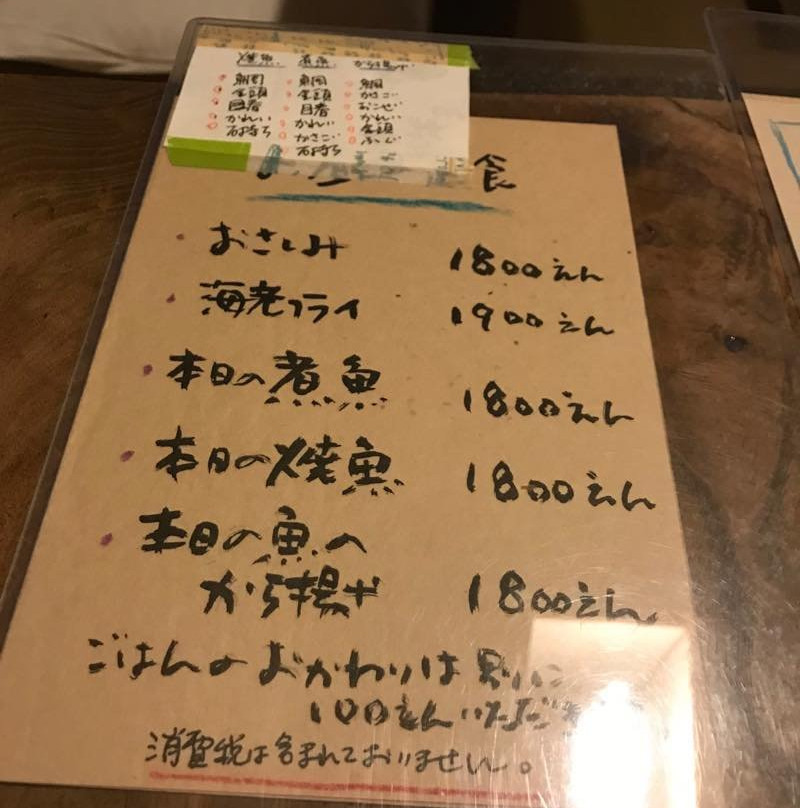 焼魚 煮魚 から揚げ
鯛 鯛 鯛
金頭 金頭 かさご
目春 目春 おこぜ
かれい かれい かれい
石持ち かさご 金頭
石持ち ふぐ
食
おさしみ 1800えん
海老フライ 1900えん
本日の煮魚 1800えん
本日の焼魚 1800えん
本日の魚の
から揚げ 1800えん
ごはんのおかわりは別に
100えんいただき
消費税は含まれておりません。